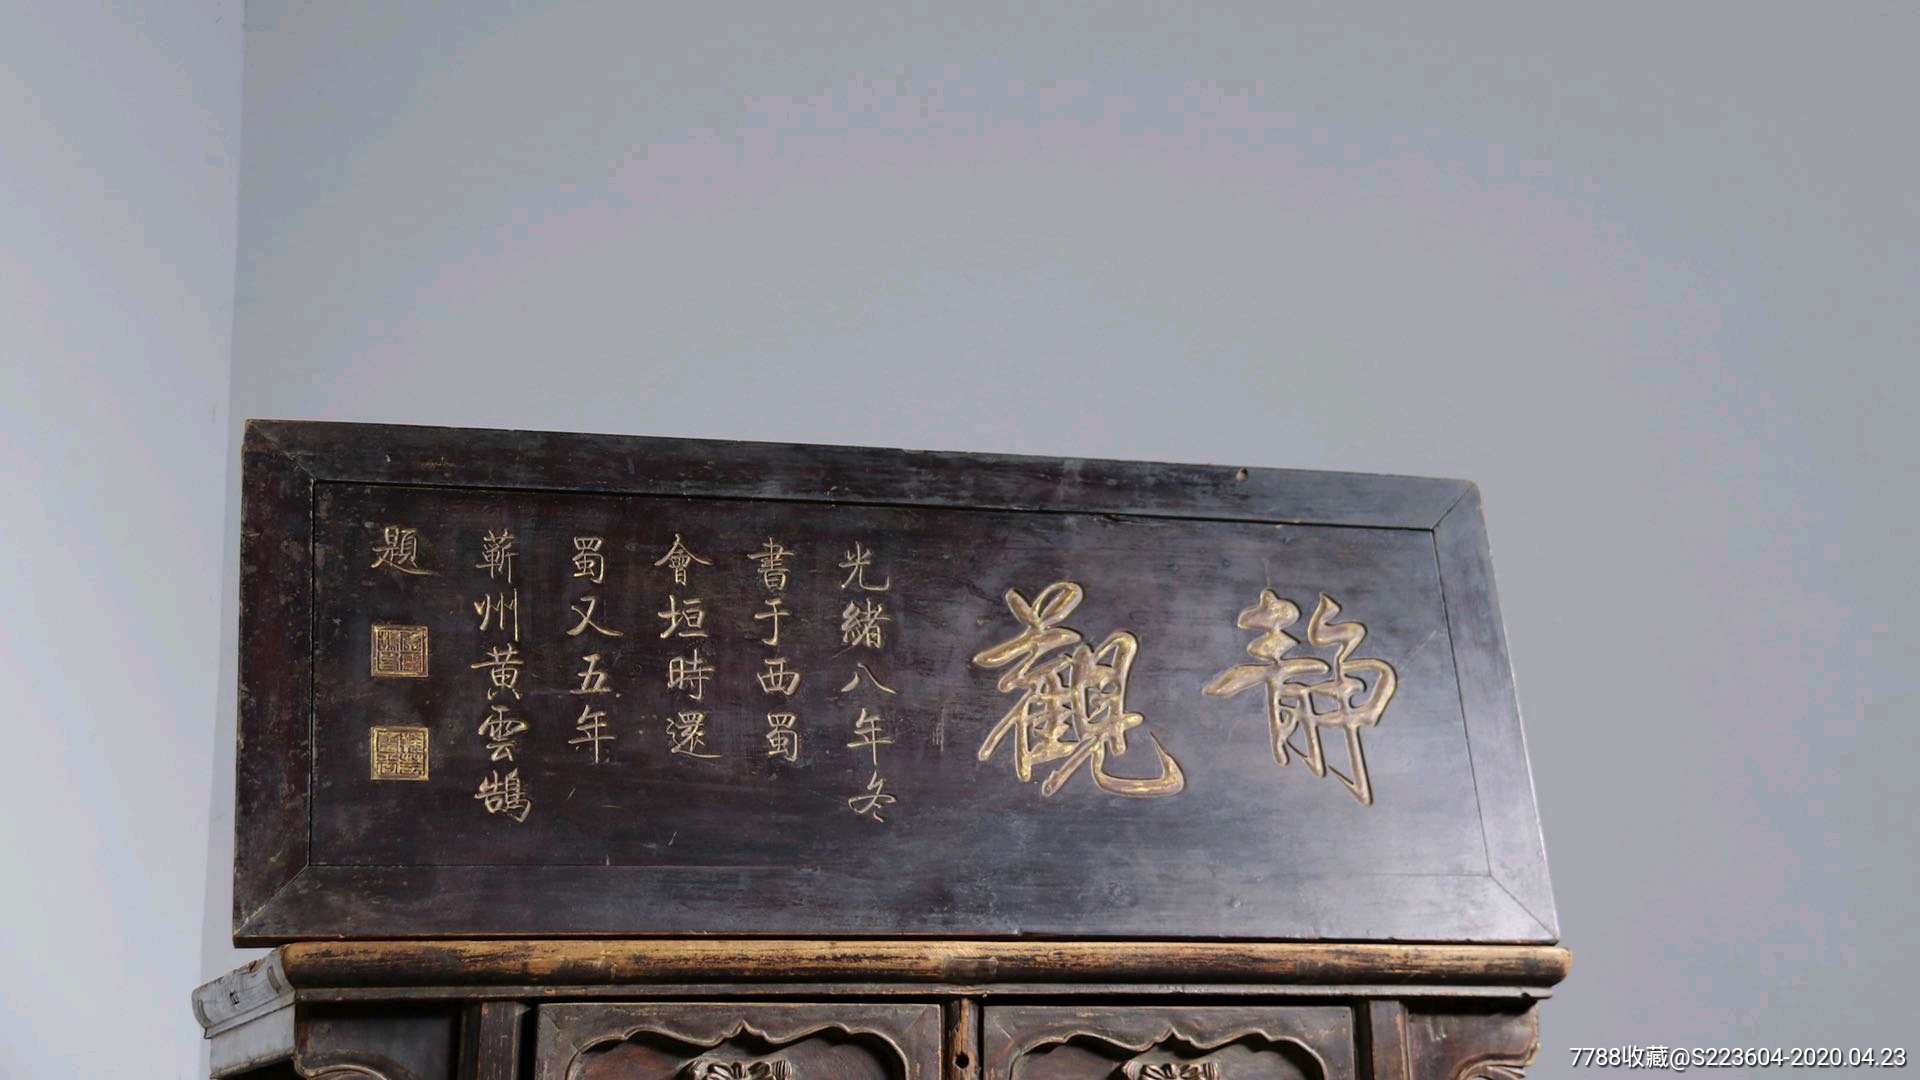 静觀
光緒八年冬
書于西蜀
會垣時還
蜀又五年
蘄州黄雲鵠
題
7788收藏@S223604-2020.04.23